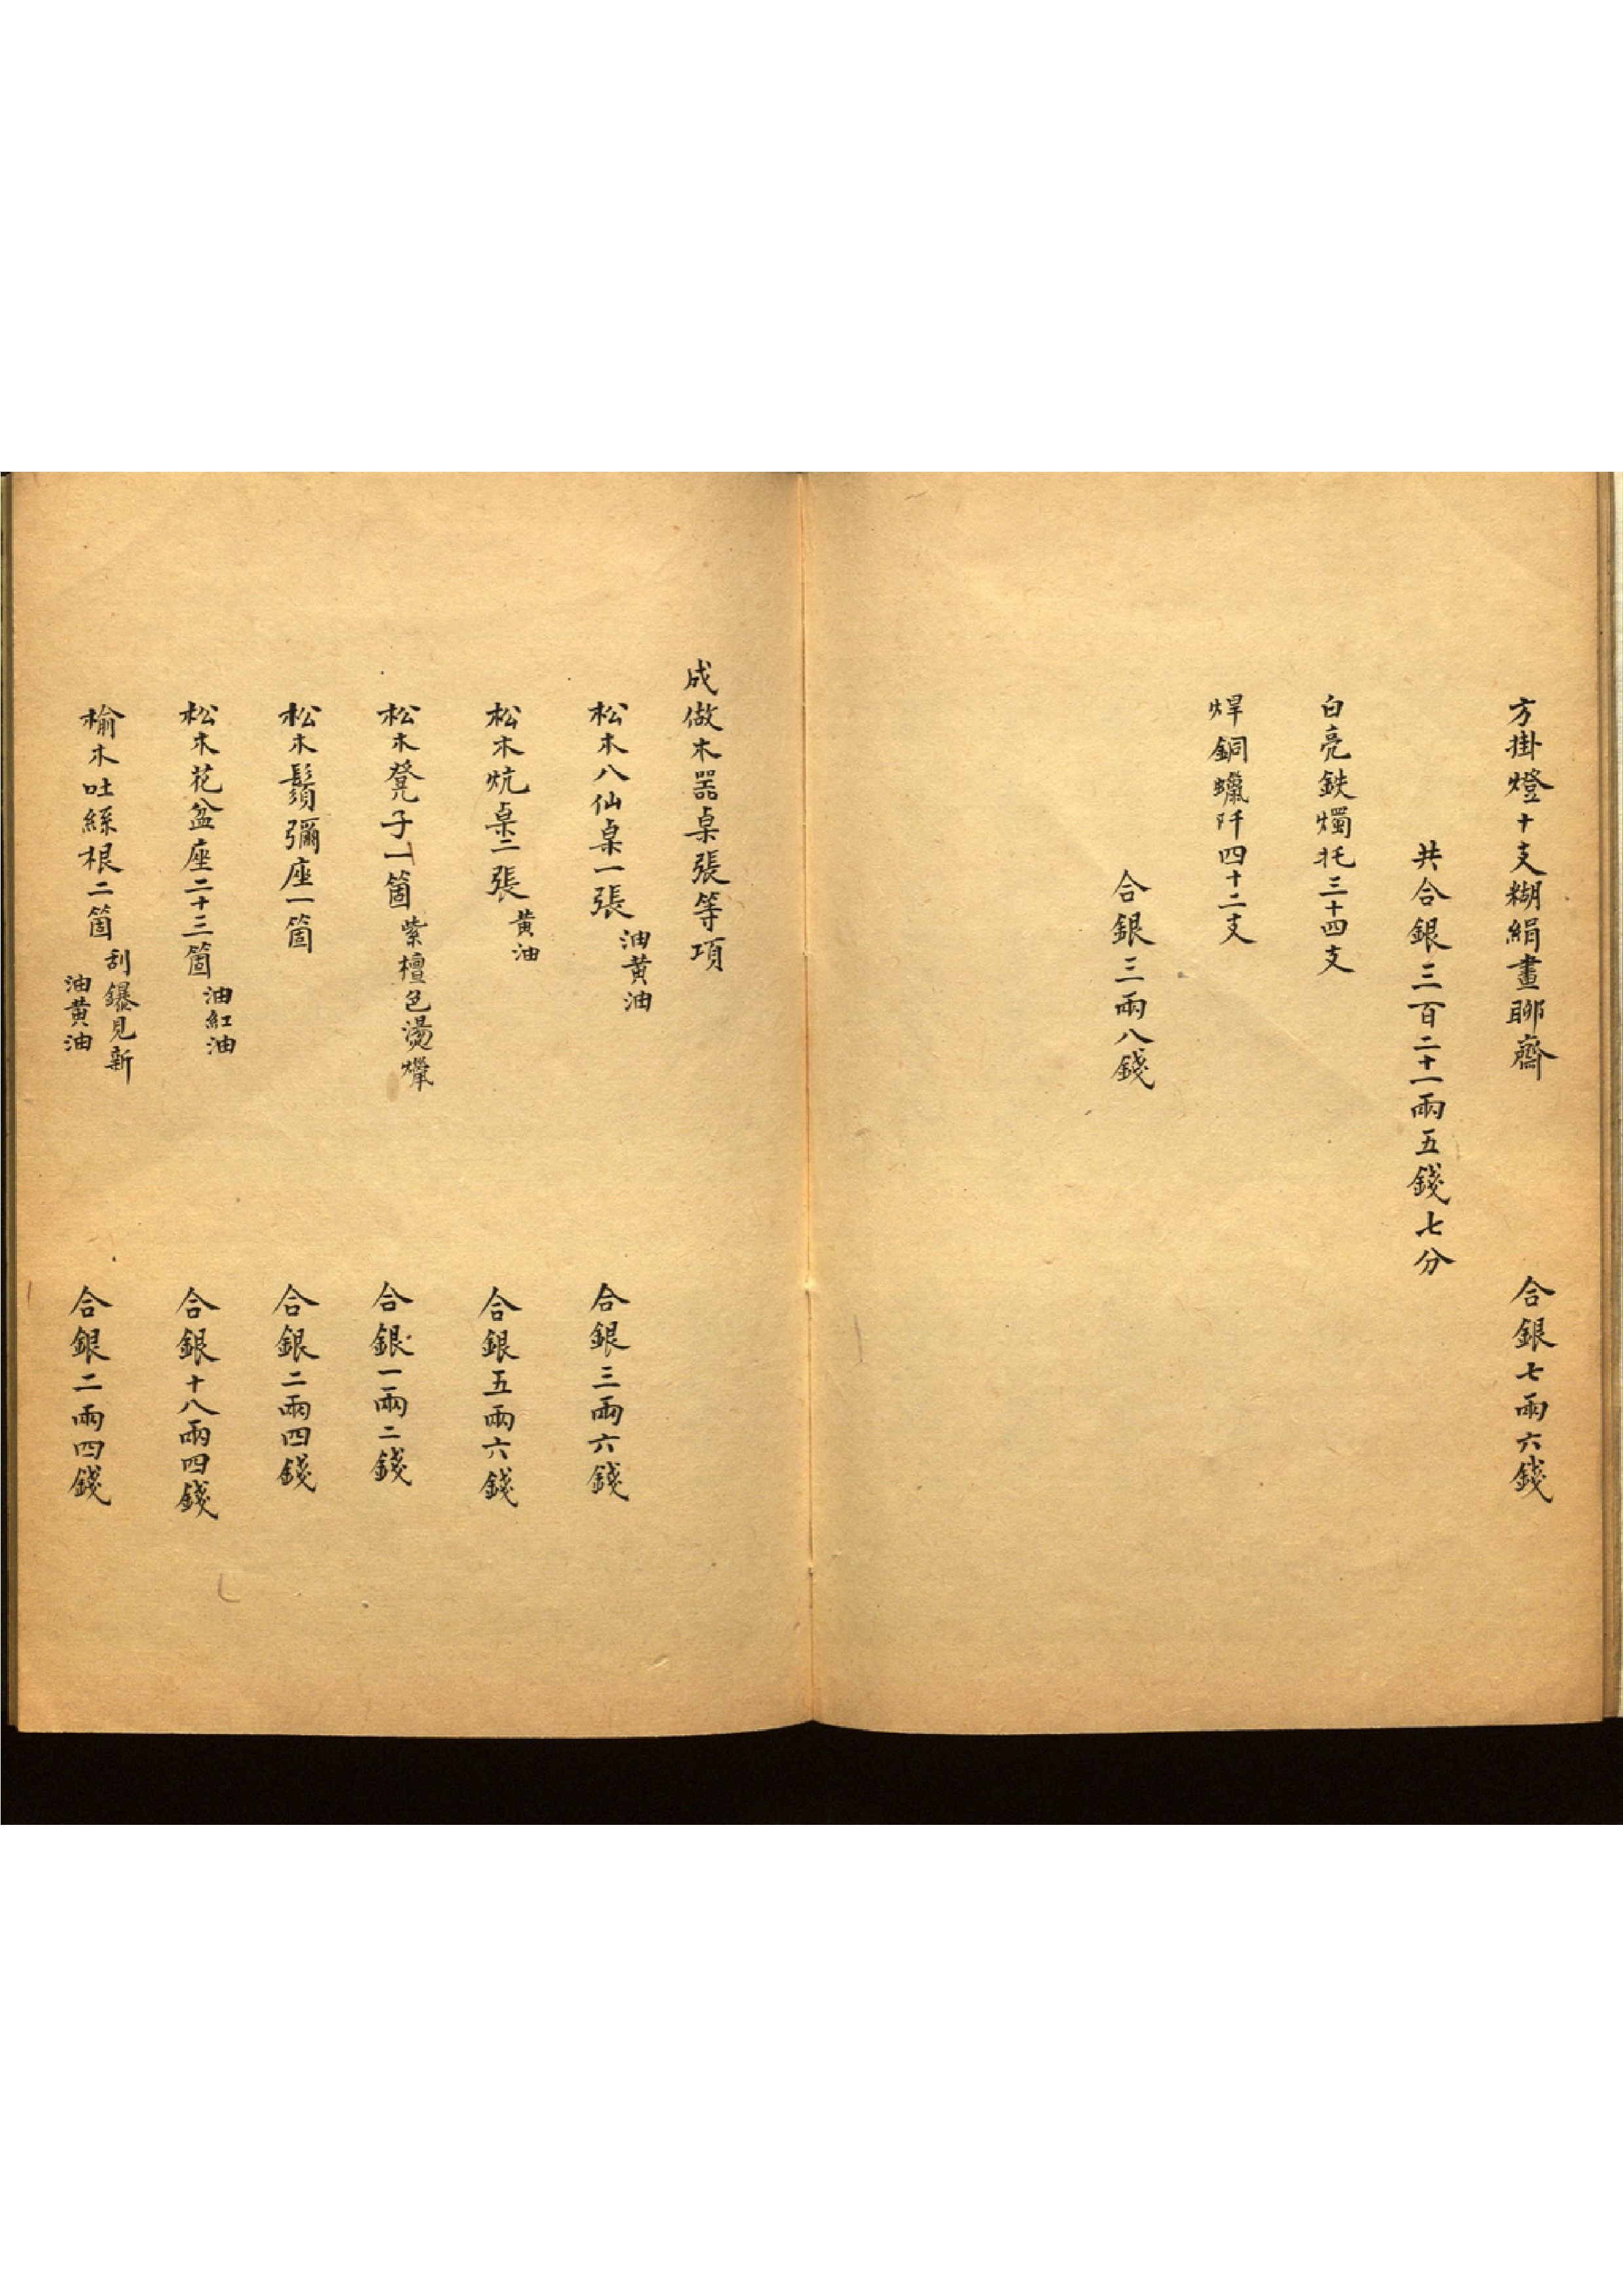 方掛燈十支糊絹畫聊齋　合銀七兩六錢
共合銀三百二十一兩五錢七分
白亮鉄燭托三十四支
焊銅蠟阡四十二支
合銀三兩八錢
成做木器桌張等項
松木八仙桌一張　油黃油　合銀三兩六錢
松木炕桌二張　黃油　合銀五兩六錢
松木凳子一箇　紫檀色燙蠟　合銀一兩二錢
松木鬚彌座一箇　合銀二兩四錢
松木花盆座二十三箇　油紅油　合銀十八兩四錢
榆木吐絲根二箇　刮鑤見新　油黃油　合銀二兩四錢